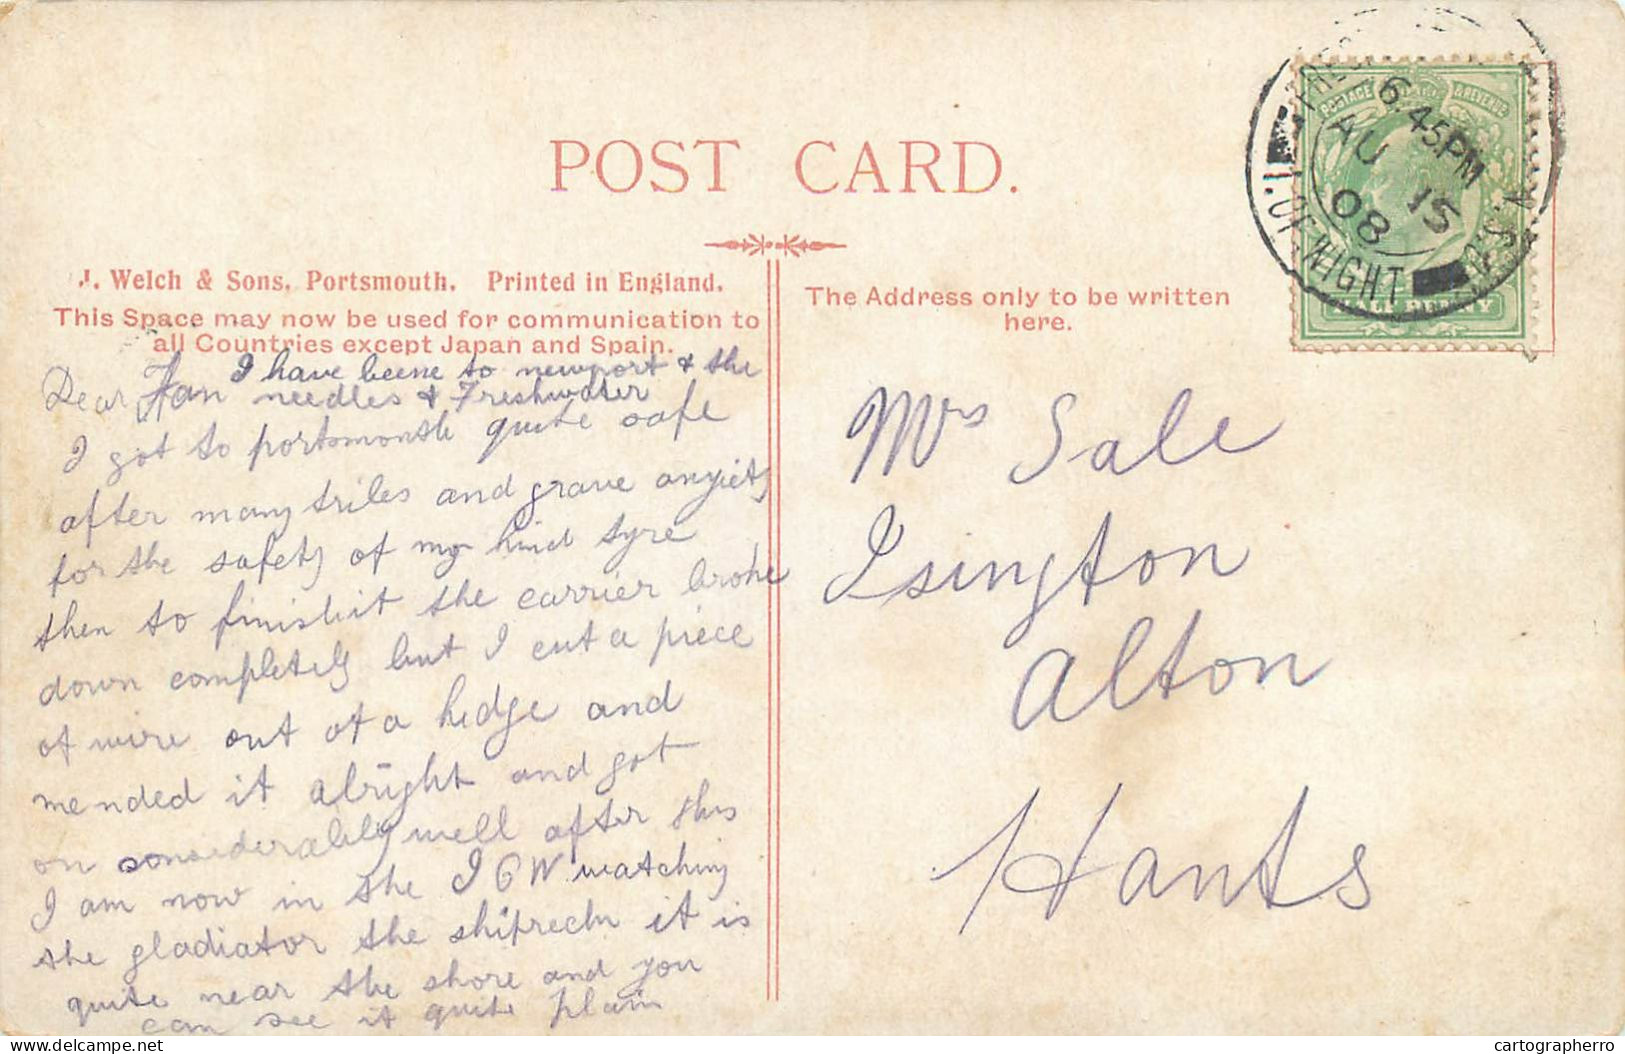 POST CARD.
J. Welch & Sons, Portsmouth. Printed in England.
This Space may now be used for communication to
all Countries except Japan and Spain.
The Address only to be written
here.
I have beene to newport & the
needles & Freshwater
Dear Fan
I got to portsmonth quite safe
after many triles and grave anxiety
for the safety of my hind tyre
then to finish it the carrier broke
down completely but I cut a piece
of wire out of a hedge and
mended it alright and got
on considerably well after this
I am now in the I O W watching
the gladiator the shiprech it is
quite near the shore and you
can see it quite plain
Mrs Sale
Isington
Alton
Hants
POSTAGE & REVENUE
HALF PENNY
6 45PM
AU 15
08
I. OF WIGHT
delcampe.net
cartographerro